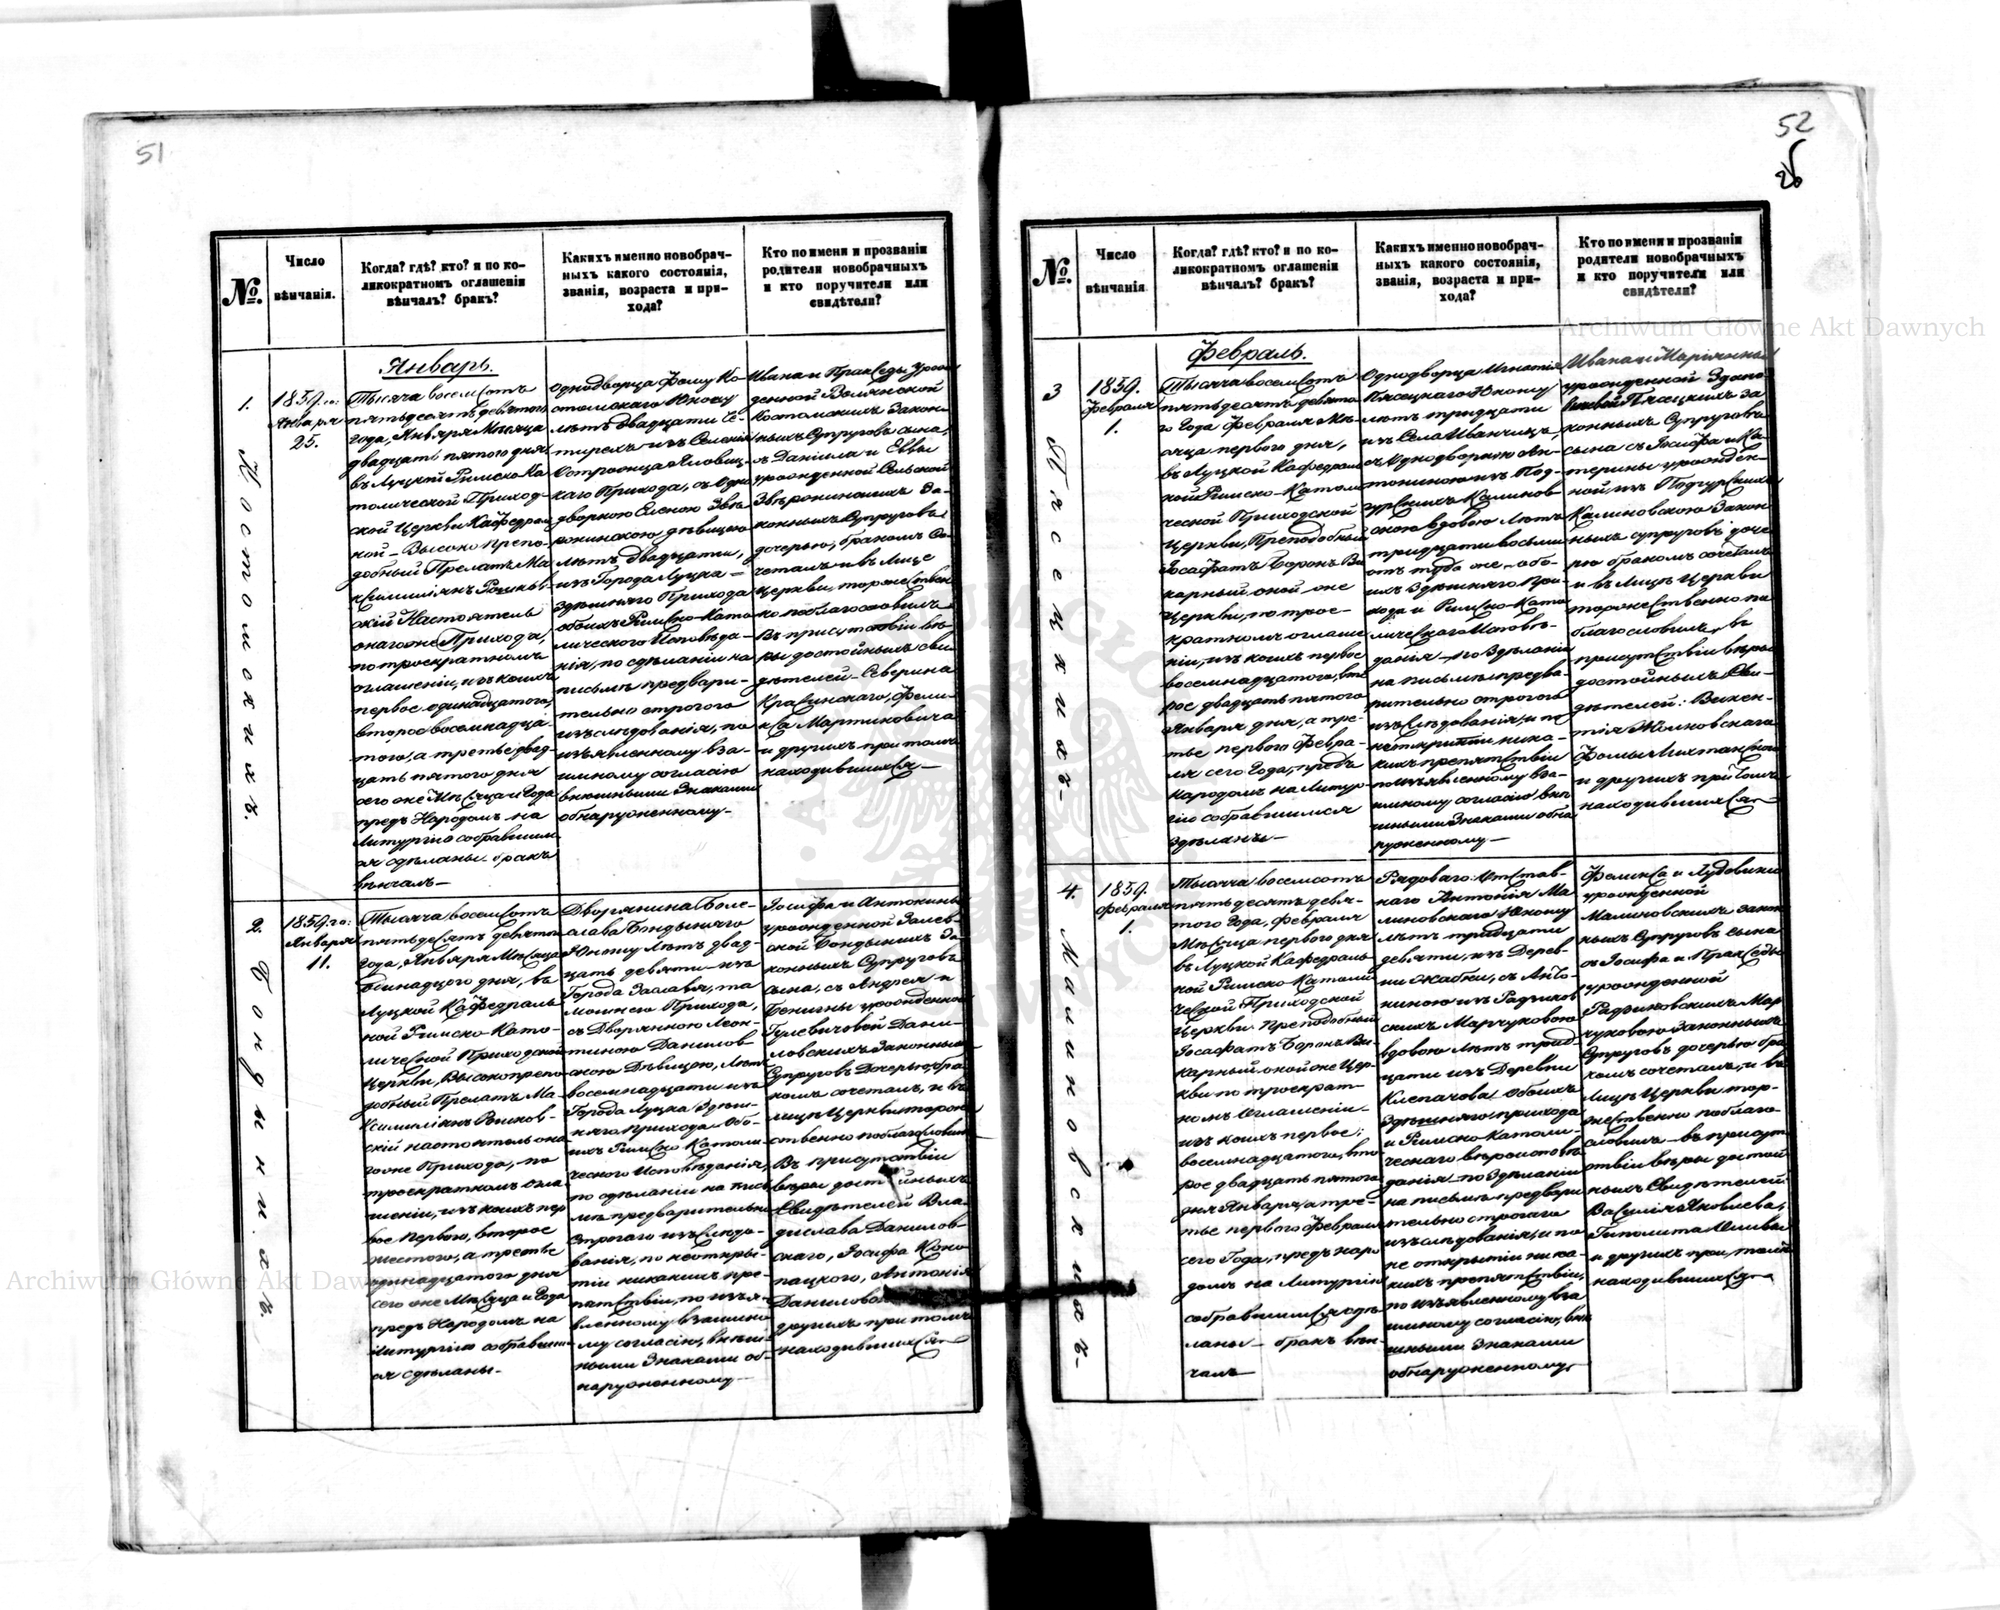 51
№.
Число
вѣнчанія.
Когда? гдѣ? кто? и по ко-
ликократномъ оглашеніи
вѣнчалъ? бракъ?
Какихъ именно новобрач-
ныхъ какого состоянія,
званія, возраста и при-
хода?
Кто по имени и прозваніи
родители новобрачныхъ
и кто поручители или
свидѣтели?
Январь.
1.
1859.го:
Января
25.
Тысяча восемсотъ
пятьдесятъ девятого
года, Января Мѣсяца
двадцать пятого дня
въ Луцкой Римско Ка
толической Приход-
ской Церкви Кафедраль
ной – Высоко Препо-
добный Прелатъ Ма
ксимиліянъ
скій Настоятель
оногоже Прихода,
по троекратномъ
оглашеніи, изъ коихъ
первое одинадцатого,
второе восемнадца
того, а третье двад-
цать пятого дня
сего же Мѣсяца и Года
предъ Народомъ на
Литургію собравшим
ся сдѣланы бракъ
вѣнчалъ—
Однодворца Фому Ко-
стомскаго Юношу
лѣтъ двадцати Че-
тырехъ изъ Селенія
каго Прихода, съ Одно
дворкою Еленою Звѣ
рожинскою дѣвицею
лѣтъ двадцати,
изъ Города Луцка =
Здѣшняго Прихода
обоихъ Римско-Като
лического Исповѣда-
нія, по сдѣланіи на
письмѣ предвари-
тельно строгого
изъслѣдованія, по
изъявленному вза-
имному согласію
внѣшными Знаками
обнаруженному.-
Ивана и Праксѣды урож
денной Волянской
Костомскихъ Закон-
ныхъ Супруговъ сына,
съ Даніила и Еввы
урожденной Сельской
Звѣрожинскихъ За-
конныхъ Супруговъ
дочерью, бракомъ Со-
четалъ и въ Лице
Церкви, торжествен
но поблагословилъ
Въ присутствіи вѣ-
ры достойныхъ сви
дѣтелей – Северина
Кравинскаго, Фели-
кса Мартиновича
и другихъ при томъ
находившихся —
Костомскихъ.
2.
1859.го:
Января
11.
Тысяча восемсотъ
пятьдесятъ девятого
года, Января Мѣсяца
Одинадцого дня, въ
Луцкой Кафедраль
ной Римско-Като-
лической Приходской
Церкви, Высокопрепо
добный Прелатъ Ма-
ксимиліянъ
скій настоятель она
гоже Прихода, по
троекратномъ огла
шеніи, изъ коихъ пер
вое Первого, второе
шестого, а третье
одинадцатого дня
сего же Мѣсяца и Года
предъ Народомъ на
Литургію собравшим
ся сдѣланы.-
Дворянина Боле-
слава Бондыняго
Юношу лѣтъ двад-
цать девяти изъ
Города Заслава, та
мошнего Прихода,
съ Дворянкою Леон-
тиною Данилов
скою Дѣвицею, лѣтъ
восемнадцати изъ
Города Луцка Здѣш-
няго Прихода Обо-
ихъ Римско Католи-
ческого Исповѣданія,
по сдѣланіи на пись
мѣ предварительно
строгаго изъслѣдо-
ванія, по неоткры-
тіи никакихъ пре-
пятствій, по изъя-
вленному взаимно
му согласію, внѣш-
ными Знаками об-
наруженному—
Іосифа и Антонины
урожденной Залев-
ской Бондыкихъ За
конныхъ Супруговъ
сына, съ Андрея и
Бенигны урожденной
Гулевичовой Дани-
ловскихъ Законныхъ
Супруговъ Дочерью, бра
комъ сочеталъ, и въ
лицѣ Церкви торже
ственно поблагословилъ
Въ присутствіи
вѣры достойныхъ
Свидѣтелей Вла-
дислава Данилов-
скаго, Іосифа Коно
пацкого, Антонія
другихъ при томъ
находившихся—
52
26
№.
Число
вѣнчанія
Когда? гдѣ? кто? и по ко-
ликократномъ оглашеніи
вѣнчалъ? бракъ?
Какихъ именно новобрач-
ныхъ какого состоянія,
званія, возраста и при-
хода?
Кто по имени и прозваніи
родители новобрачныхъ
и кто поручители или
свидѣтели?
Февраль.
3
1859.
Февраля
1.
Тысяча восемсотъ
пятьдесятъ девято
го Года Февраля Мѣ-
сяца первого дня,
въ Луцкой Кафедраль
ной Римско-Катол
ической Приходской
Церкви, Преподобный
Іосафатъ Боронъ Ви
карный оной же
Церкви, по трое-
кратномъ оглаше
ніи, изъ коихъ первое
восемнадцатого, вто
рое двадцать пятого
Января дня, а тре-
тье первого Февра-
ля сего Года, предъ
Народомъ на Литур-
гію собравшимся
Здѣланы—
Однодворца Игнатія
Пясецкаго Юношу
лѣтъ тридцати
изъ Села Иванчицъ,
съ Однодворкою Ан-
тониною изъ Под-
гурскихъ Калинов
скою вдовою лѣтъ
тридцати восьми
отъ туда же, обо-
ихъ Здѣшняго При-
хода и Римско-Като
лического Исповѣ-
данія – по Здѣланіи
на письмѣ предва-
рительно строгого
изъслѣдованія, и по
неоткрытіи ника-
кихъ препятствій
по изъявленному вза-
имному согласію внѣ
шными Знаками обна
руженному—
Ивана и Маріянны
урожденной
Пясецкихъ За
конныхъ Супруговъ
сына съ Іосифа и Ка-
терины урожден-
ной, изъ Подгурскихъ
Калиновскою Закон
ныхъ супруговъ доче
рю бракомъ сочеталъ
и въ Лицѣ Церкви
торжественно по
благословилъ, въ
присутствіи вѣры
достойныхъ Сви-
дѣтелей: Викен-
тія Жолковскаго
Фомы
и другихъ при томъ
находившихся—
Пясецкихъ-
4.
1859.
Февраля
1.
Тысяча восемсотъ
пятьдесятъ девя-
того Года, Февраля
Мѣсяца первого дня
въ Луцкой Кафедраль
ной Римско Католи
ческой Приходской
Церкви Преподобный
Іосафатъ Боронъ Ви-
карный оной же Цер-
кви по троекрат-
номъ Оглашеніи-
изъ коихъ первое;
восемнадцатого, вто
рое двадцать пятого
дня Января, а тре-
тье первого Февраля
сего Года, предъ наро
домъ на Литургію
собравшимся сдѣ-
ланы – бракъ вѣн-
чалъ—
Рядоваго: Отстав-
наго Антонія Ма
линовскаго Юношу
лѣтъ тридцати
девяти, изъ Дерев-
ни Жабки, съ Анто-
ниною изъ Радзиков
скихъ Марчуковою
вдовою лѣтъ трид-
цати изъ Деревни
Клепачова Обоихъ
Здѣшняго прихода
и Римско Католи-
ческаго вѣроисповѣ
данія – по Здѣланіи
на письмѣ предвари
тельно строгаго
изъслѣдованія, и по
не открытіи ника-
кихъ препятствій,
по изъявленному вза
имному согласію, внѣ
шными Знаками
обнаруженному—
Феликса и Людовики
урожденной
Малиновскихъ закон
ныхъ Супруговъ сына
съ Іосифа и Праксѣды
урожденной
Радзиковскихъ Мар
чуковою Законныхъ
Супруговъ дочерью бра
комъ сочеталъ, и въ
Лицѣ Церкви тор-
жественно поблаго-
словилъ – въ присут
ствіи вѣры достой
ныхъ Свидѣтелей:
Василія Яковлева,
Гиполита
и другихъ при томъ
находившихся—
Малиновскихъ-
Archiwum Główne Akt Dawnych
Archiwum Główne Akt Dawnych